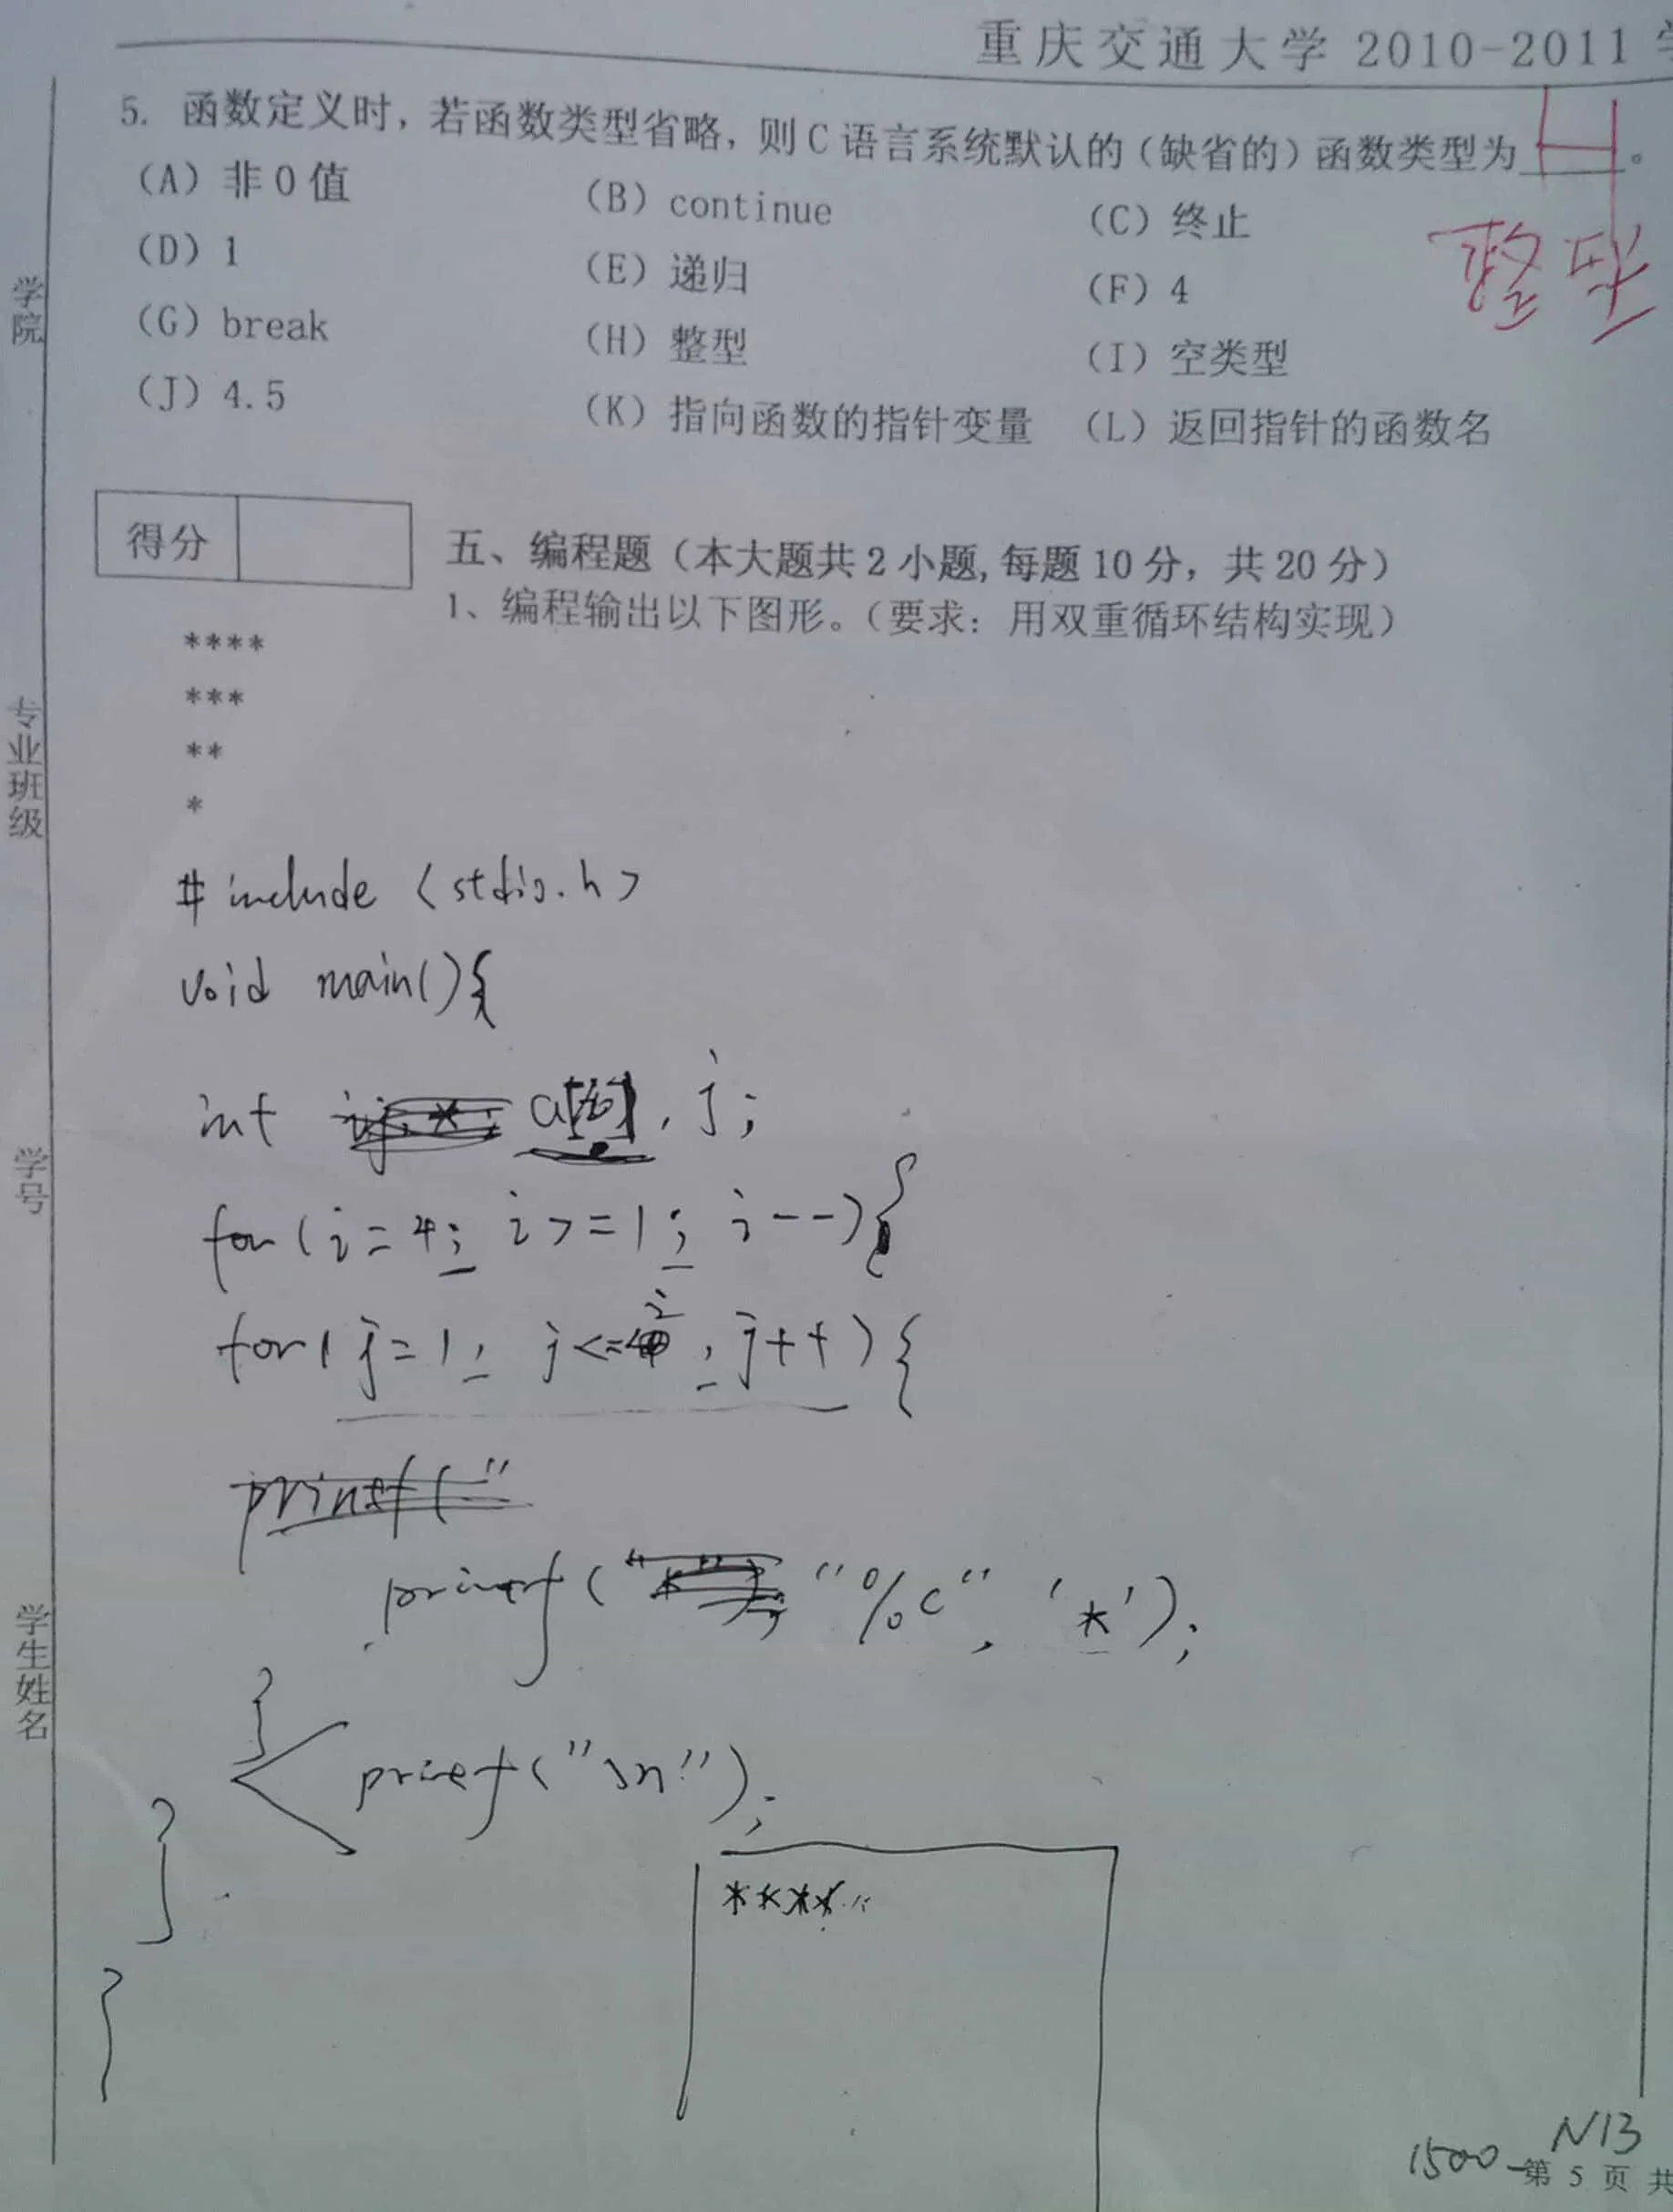 重庆交通大学 2010-2011 学
5. 函数定义时，若函数类型省略，则C语言系统默认的（缺省的）函数类型为 H 。
整型
（A）非0值 （B）continue （C）终止
（D）1 （E）递归 （F）4
（G）break （H）整型 （I）空类型
（J）4.5 （K）指向函数的指针变量 （L）返回指针的函数名
得分
五、编程题（本大题共2小题,每题10分，共20分）
1、编程输出以下图形。（要求：用双重循环结构实现）
****
***
**
*
#include <stdio.h>
void main(){
int , j;
for(i=4; i>=1; i--){
for(j=1, j<=i, j++){
printf("
printf("*"); "%c", '*');
}
printf("\n");
}
}
****
学院
专业班级
学号
学生姓名
1500 N13
第 5 页 共